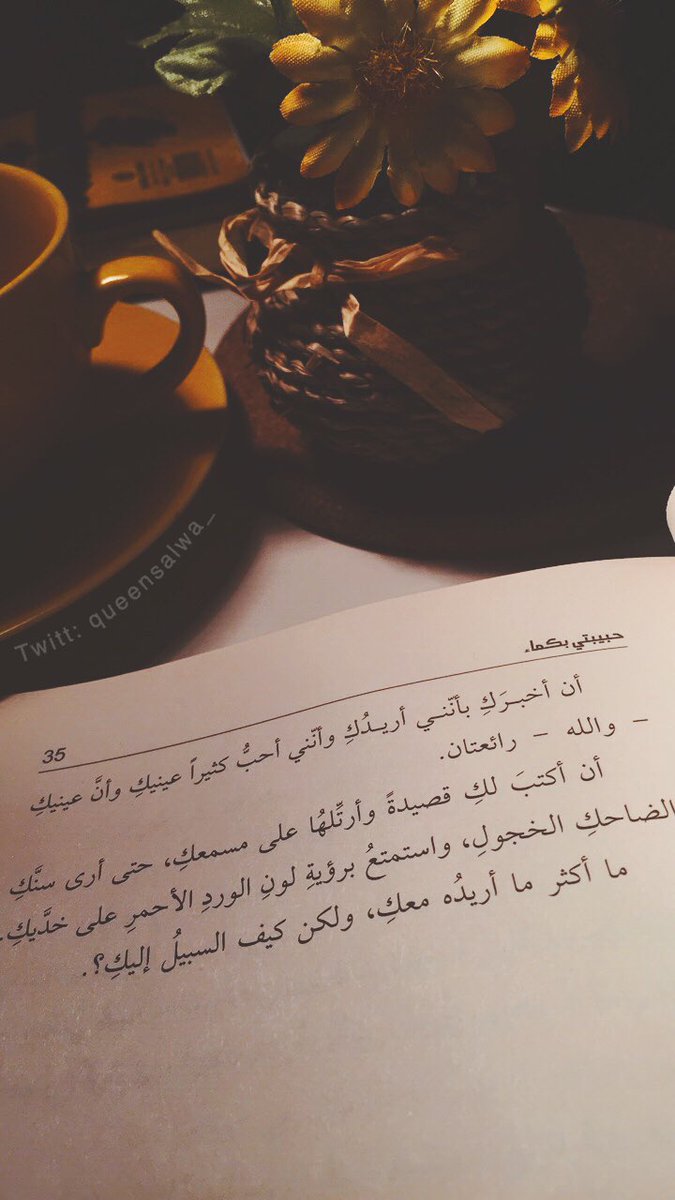 Twitt: queensalwa_
حبيبتي بكماء
35
أن أخبـرَكِ بأنّنـي أريـدُكِ وأنّني أحبُّ كثيراً عينيكِ وأنَّ عينيكِ
– والله – رائعتان.
أن أكتبَ لكِ قصيدةً وأرتِّلهُا على مسمعكِ، حتى أرى سنَّكِ
الضاحكِ الخجولِ، واستمتعُ برؤيةِ لونِ الوردِ الأحمرِ على خدَّيكِ.
ما أكثر ما أريدُه معكِ، ولكن كيف السبيلُ إليكِ؟.